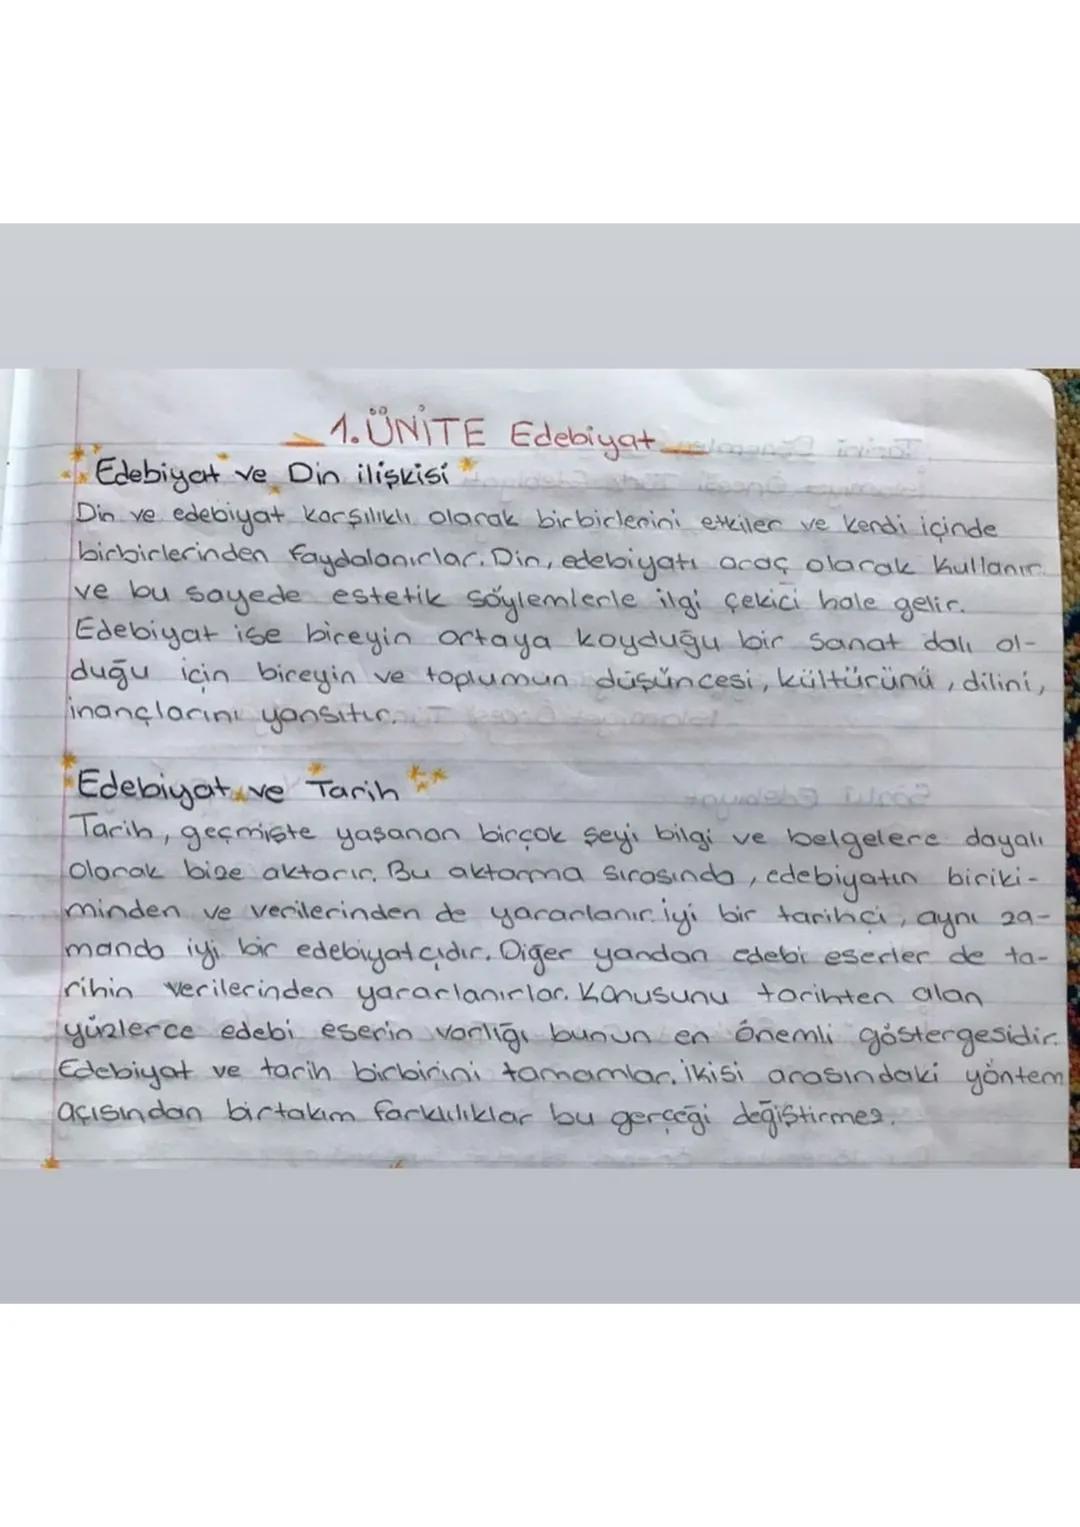 1.ÜNİTE Edebiyat
Edebiyat ve Din ilişkisi
Din ve edebiyat karşılıklı olarak birbirlerini etkiler ve kendi içinde
birbirlerinden faydalanırlar. Din, edebiyatı araç olarak kullanır
ve bu sayede estetik söylemlerle ilgi çekici hale gelir.
Edebiyat ise bireyin ortaya koyduğu bir sanat dalı ol-
duğu için bireyin ve toplumun düşüncesi, kültürünü, dilini,
inançlarını yansıtır.
Edebiyat ve Tarih
Tarih, geçmişte yaşanan birçok şeyi bilgi ve belgelere dayalı
olarak bize aktarır. Bu aktarma sırasında, edebiyatın biriki-
minden ve verilerinden de yararlanır. İyi bir tarihçi, aynı za-
manda iyi bir edebiyatçıdır. Diğer yandan edebi eserler de ta-
rihin verilerinden yararlanırlar. Konusunu tarihten alan
yüzlerce edebi eserin varlığı bunun en önemli göstergesidir.
Edebiyat ve tarih birbirini tamamlar. İkisi arasındaki yöntem
açısından birtakım farklılıklar bu gerçeği değiştirmez.